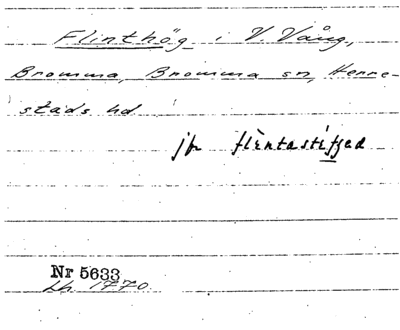 Flinthög i V. Vång,
Bromma, Bromma sn, Herre-
stads hd
jfr flintastí
Nr 5633
Lh. 1770